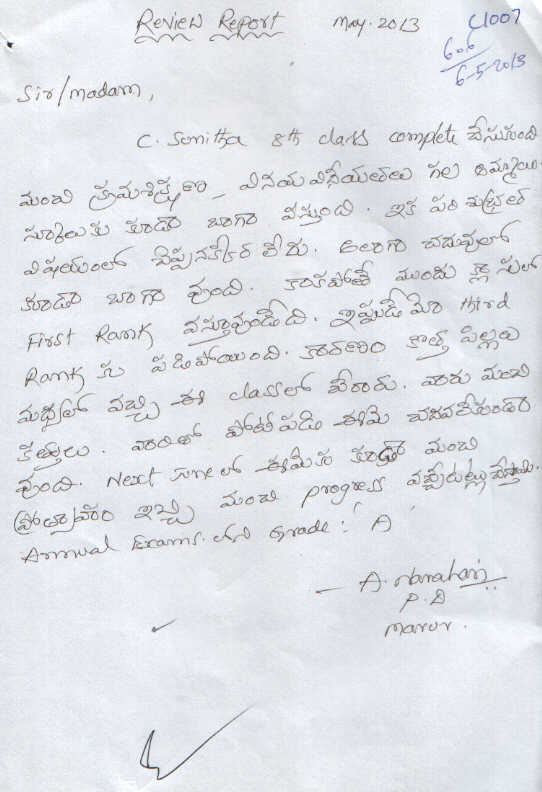 Review Report May. 2013 C1007
606
6-5-2013
Sir/madam,
C. Sunitha 8th class complete చేసుకుంది
మంచి క్రమశిక్షణ, వినయ విధేయతలు గల అమ్మాయి.
స్కూలుకు కూడా బాగా వస్తుంది. ఇక పరిశుభ్రత
విషయంలో చెప్పనక్కర లేదు. అలాగా చదువులో
కూడా బాగా వుంది. కాకపోతే ముందు క్లాసులో
First Rank వస్తూవుండేది. ఇప్పుడేమో third
Rank కు పడిపోయింది. కారణం కొత్త పిల్లలు
మధ్యలో వచ్చి ఈ classలో చేరారు. వారు మంచి
. వారితో పోటీపడి ఈమె చదవలేకుండా
వుంది. Next June లో ఈమెకు కూడా మంచి
ప్రోత్సాహం ఇచ్చి మంచి progress వచ్చేటట్లు చేస్తాము.
Annual Exams. లో Grade: 'A'
- A. Narahari
P.D
Marur.